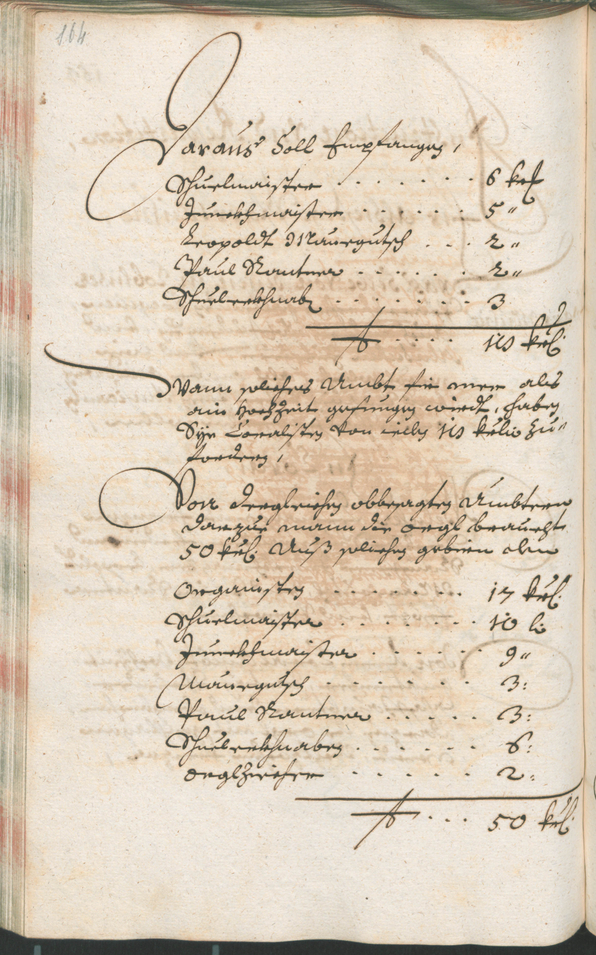 164
Daraus soll Empfangen,
Schuelmaister . . . . . . 6 krl
Junckhmaister . . . . . 5 "
Leopoldt Mauregutsch . . . 2 "
Paul Rantner . . . . . . 2 "
Schuelerkhnab . . . . . . . 3
. . . . 18 krl:
Wann solliches Ambt für mer als
ain Hochzeit gesungen wirdt, haben
Sye Coralisten von ieden 18 krl zu
fordern,
Von dergleichen obbesagten Ambtern
darzue mann die orgl braucht
50 krl: Muß solichen geben dem
Organisten . . . . . . . . 17 krl:
Schuelmaister . . . . . . . 10
Junckhmaister . . . . . . 9 "
Mauregutsch . . . . . . . 3:
Paul Rantner . . . . . 3:
Schuelerkhnaben . . . . . . 6:
orglziecher . . . . . . 2:
. . . 50 krl: